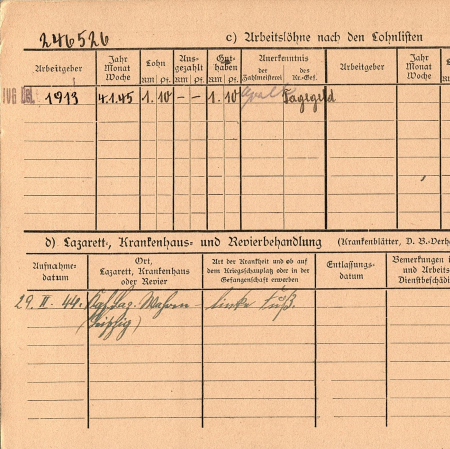 246526
c) Arbeitslöhne nach den Lohnlisten
Arbeitgeber
Jahr
Monat
Woche
Lohn
RM
Pf.
Aus-
gezahlt
RM
Pf.
Gut-
haben
RM
Pf.
Anerkenntnis
der
Zahlmeisterei
des
Kr.-Gef.
Arbeitgeber
Jahr
Monat
Woche
JUG 1913
4.1.45
1.
10
-
-
1.
10
Tagegeld
d) Lazarett-, Krankenhaus- und Revierbehandlung
(Krankenblätter, D. B.-Verh
Aufnahme-
datum
Ort,
Lazarett, Krankenhaus
oder Revier
Art der Krankheit und ob auf
dem Kriegsschauplatz oder in der
Gefangenschaft erworben
Entlassungs-
datum
Bemerkungen i
und Arbeits
Dienstbeschädi
29. II. 44. Laz. Wahren - linke Fuß
(Leipzig)